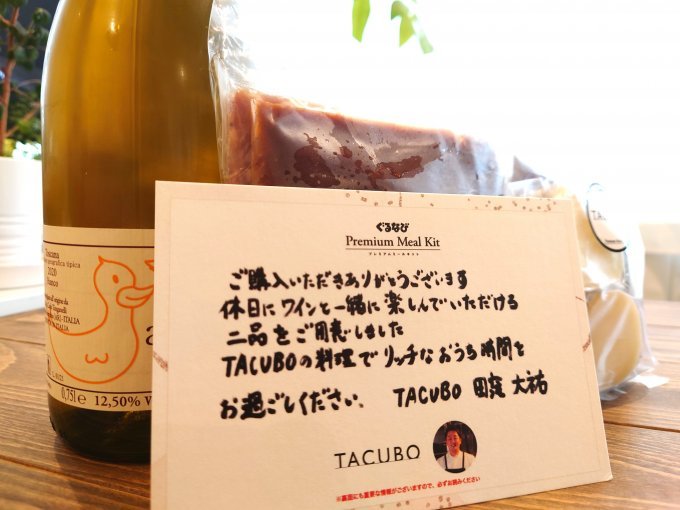 ぐるなび
Premium Meal Kit
プレミアムミールキット
ご購入いただきありがとうございます
休日にワインと一緒に楽しんでいただける
二品をご用意しました
TACUBOの料理でリッチなおうち時間を
お過ごしください、 TACUBO 田窪 大祐
TACUBO
※裏面にも重要な情報がございますので、必ずお読みください
Toscana
geografica tipica
2020
Bianco
ITALIA
0,75l e 12,50% V
TACU